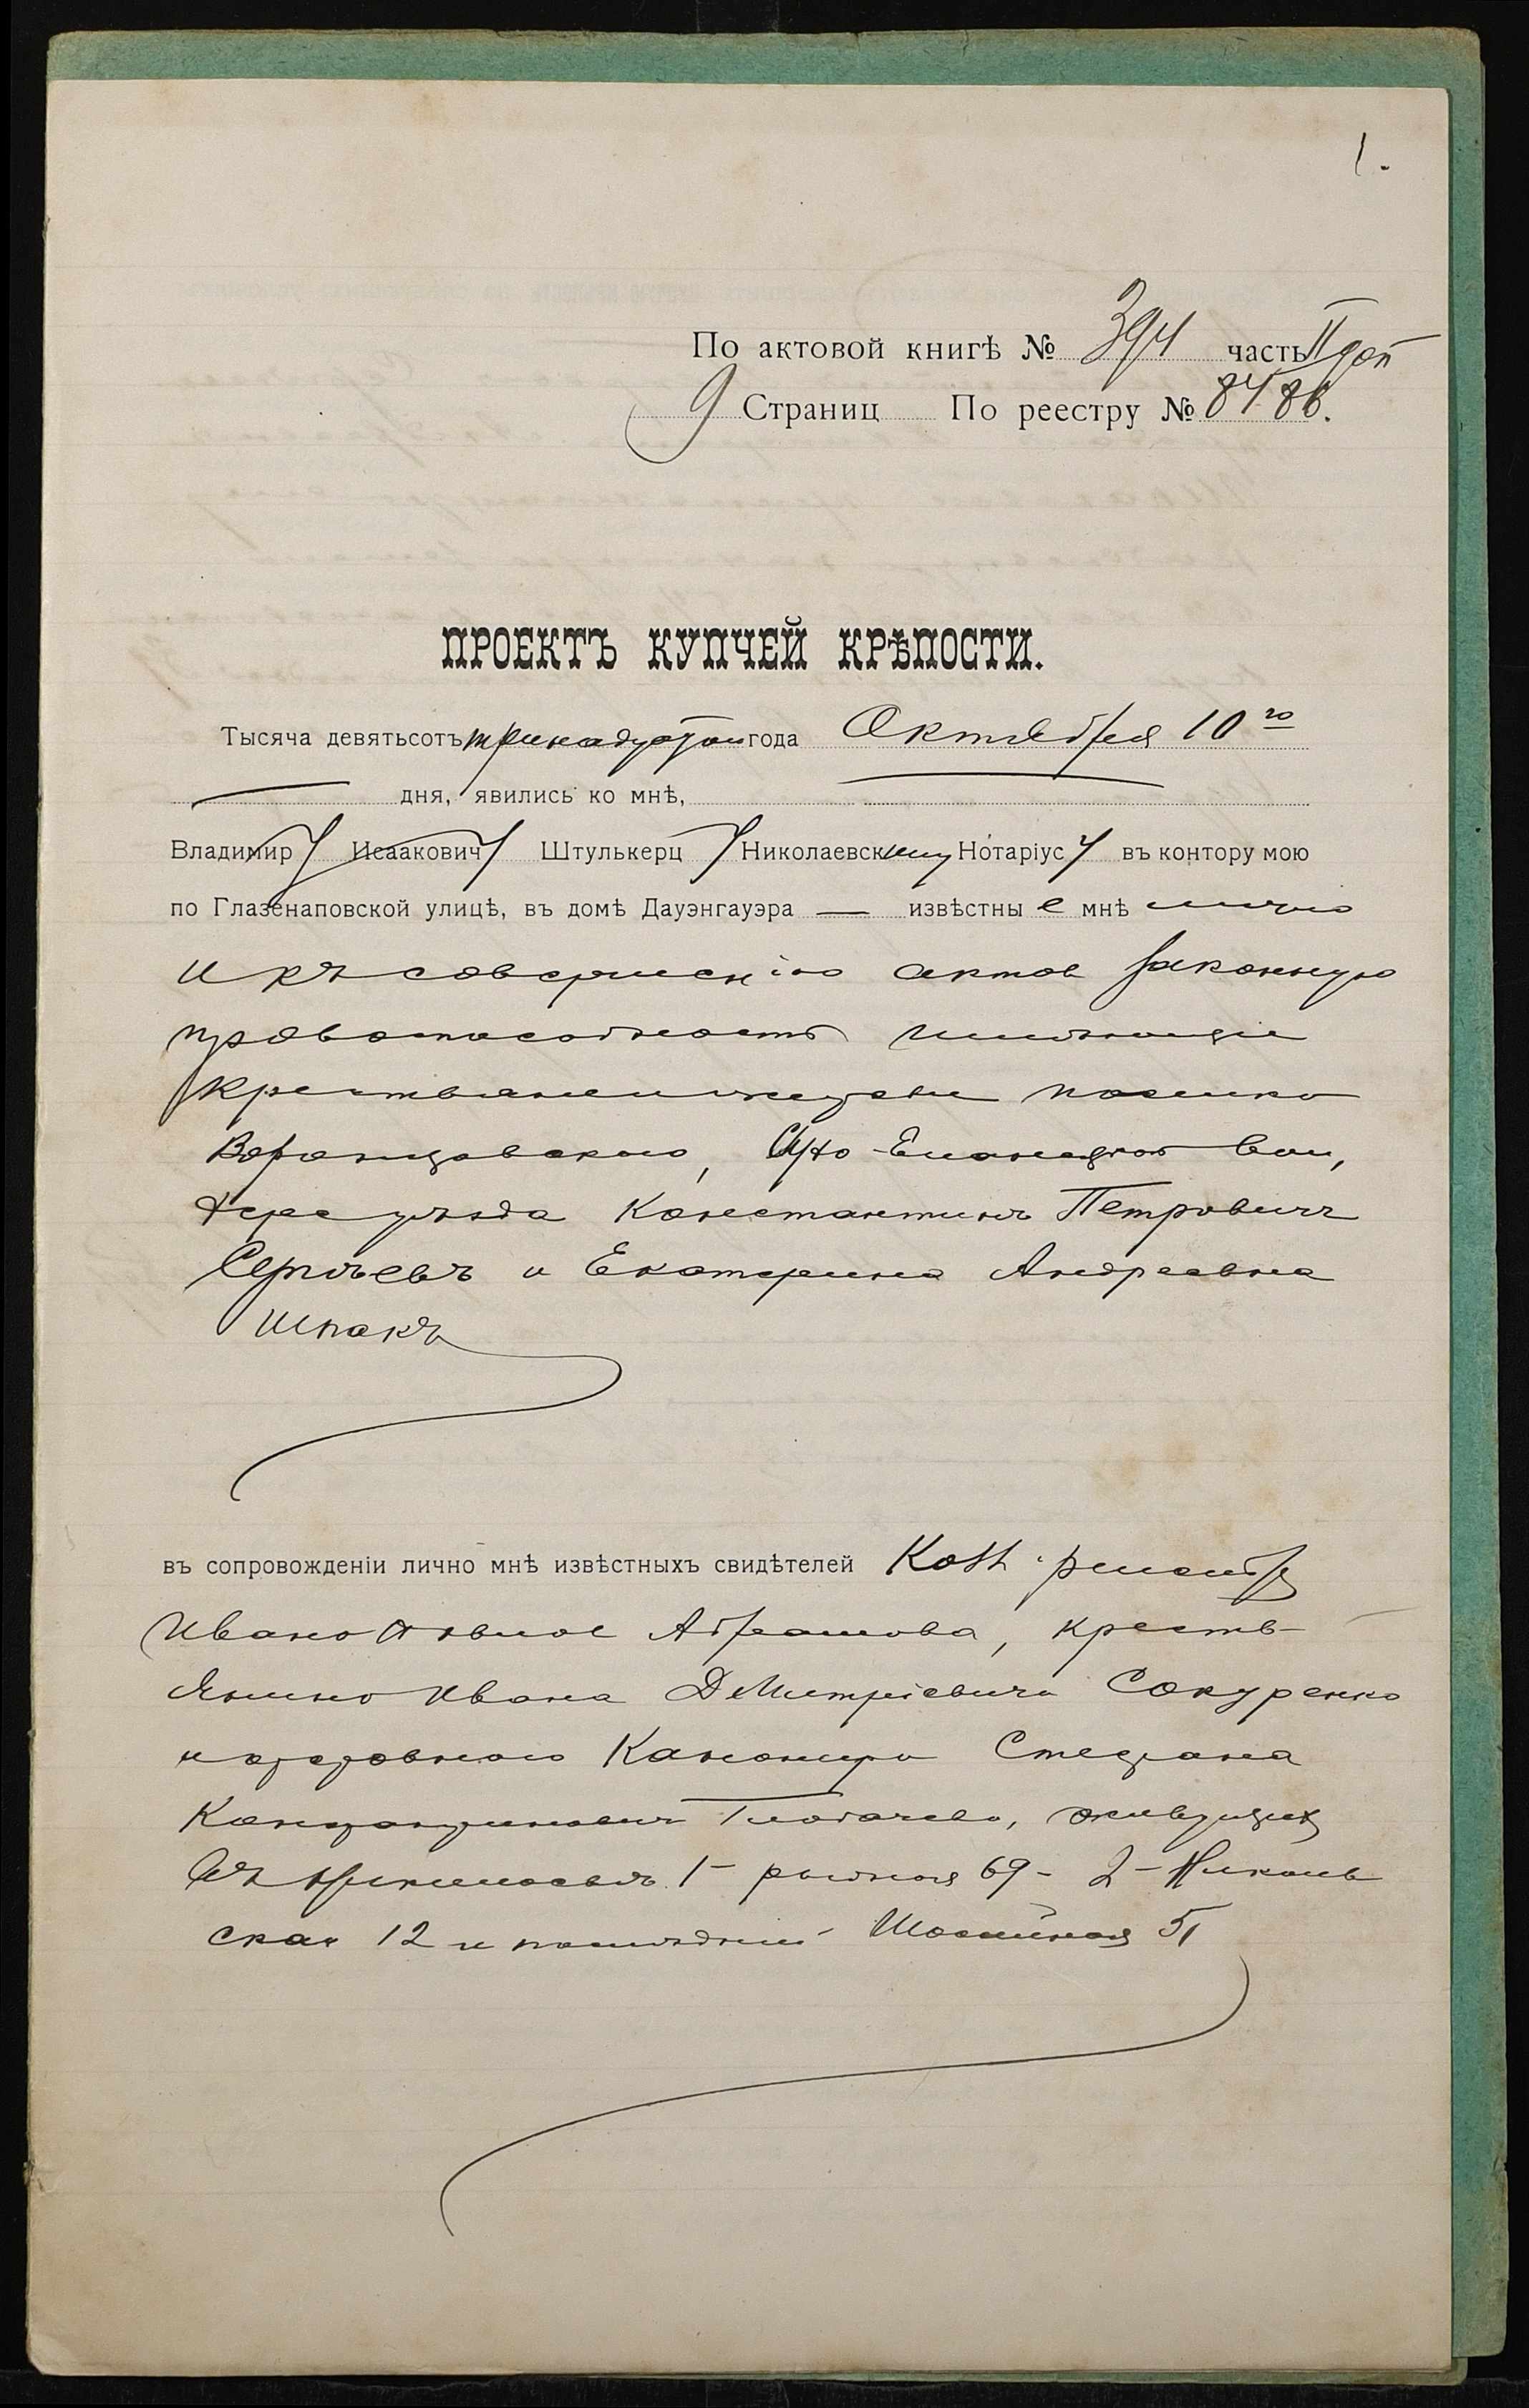 1.
По актовой книгѣ № 394 часть II доп
9 Страниц По реестру № 8486.
ПРОЕКТЪ КУПЧЕЙ КРѢПОСТИ.
Тысяча девятьсотъ тринадцатаго года Октября 10го
дня, явились ко мнѣ,
Владимиру Исааковичу Штулькерцу Николаевскому Нотаріусу въ контору мою
по Глазенаповской улицѣ, въ домѣ Дауэнгауэра — извѣстные мнѣ лично
и къ совершенію актов законную
правоспособность имѣющіе
крестьяне
Воронцовскаго, Ново-Еланецкой вол,
Херс уѣзда Константинъ Петровичъ
Сергѣевъ и Екатерина Андреевна
Шпакъ
въ сопровожденіи лично мнѣ извѣстныхъ свидѣтелей Колл. регистр
Ивана Абрамова, кресть-
янина Ивана Дмитріевича Сокуренко
и Канонира Стефана
живущих
въ Николаевѣ 1- 69- 2-Николаев
ская 12 и послѣдній 51